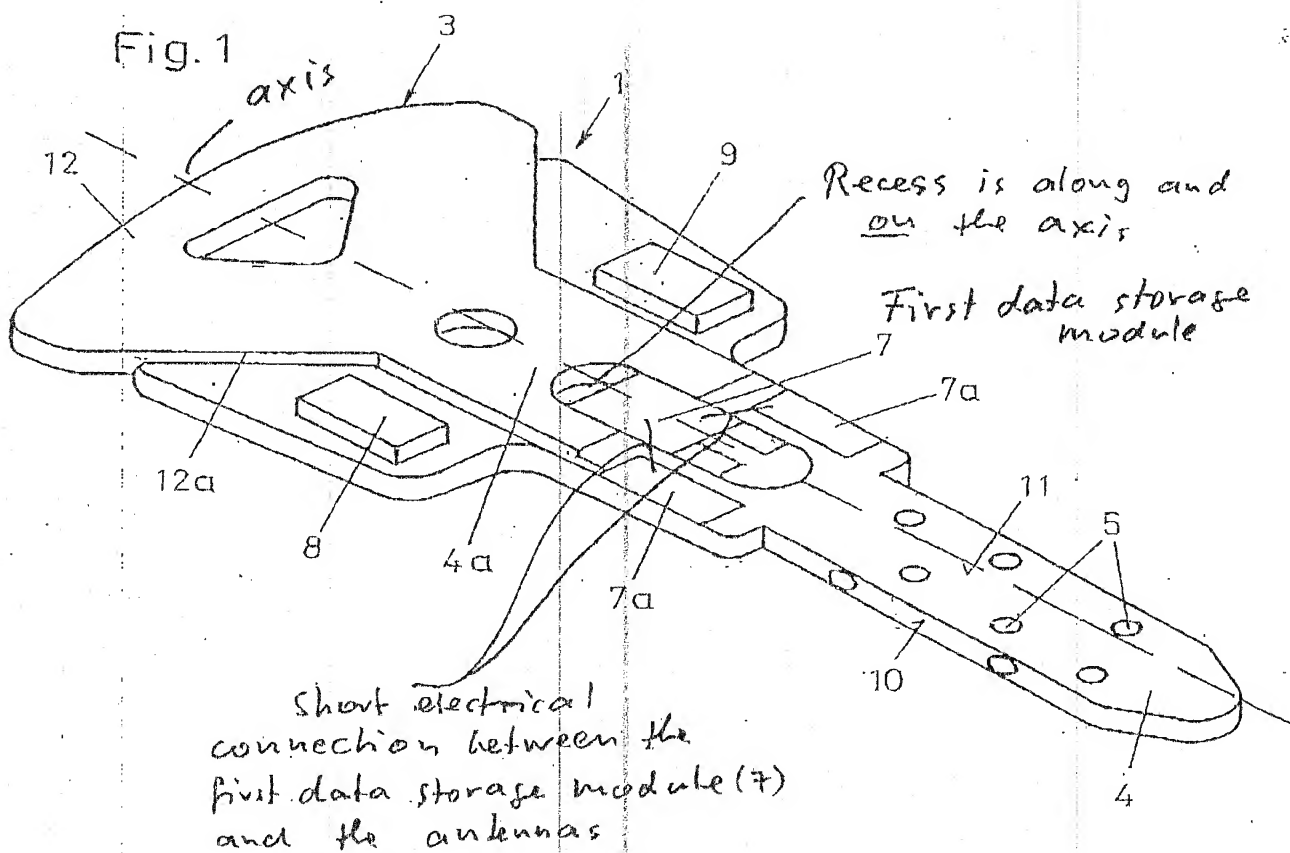 Fig. 1
axis
3
1
12
9
Recess is along and
on the axis
First data storage
module
7
7a
12a
8
4a
7a
11
5
10
4
Short electrical
connection between the
first data storage module (7)
and the antennas